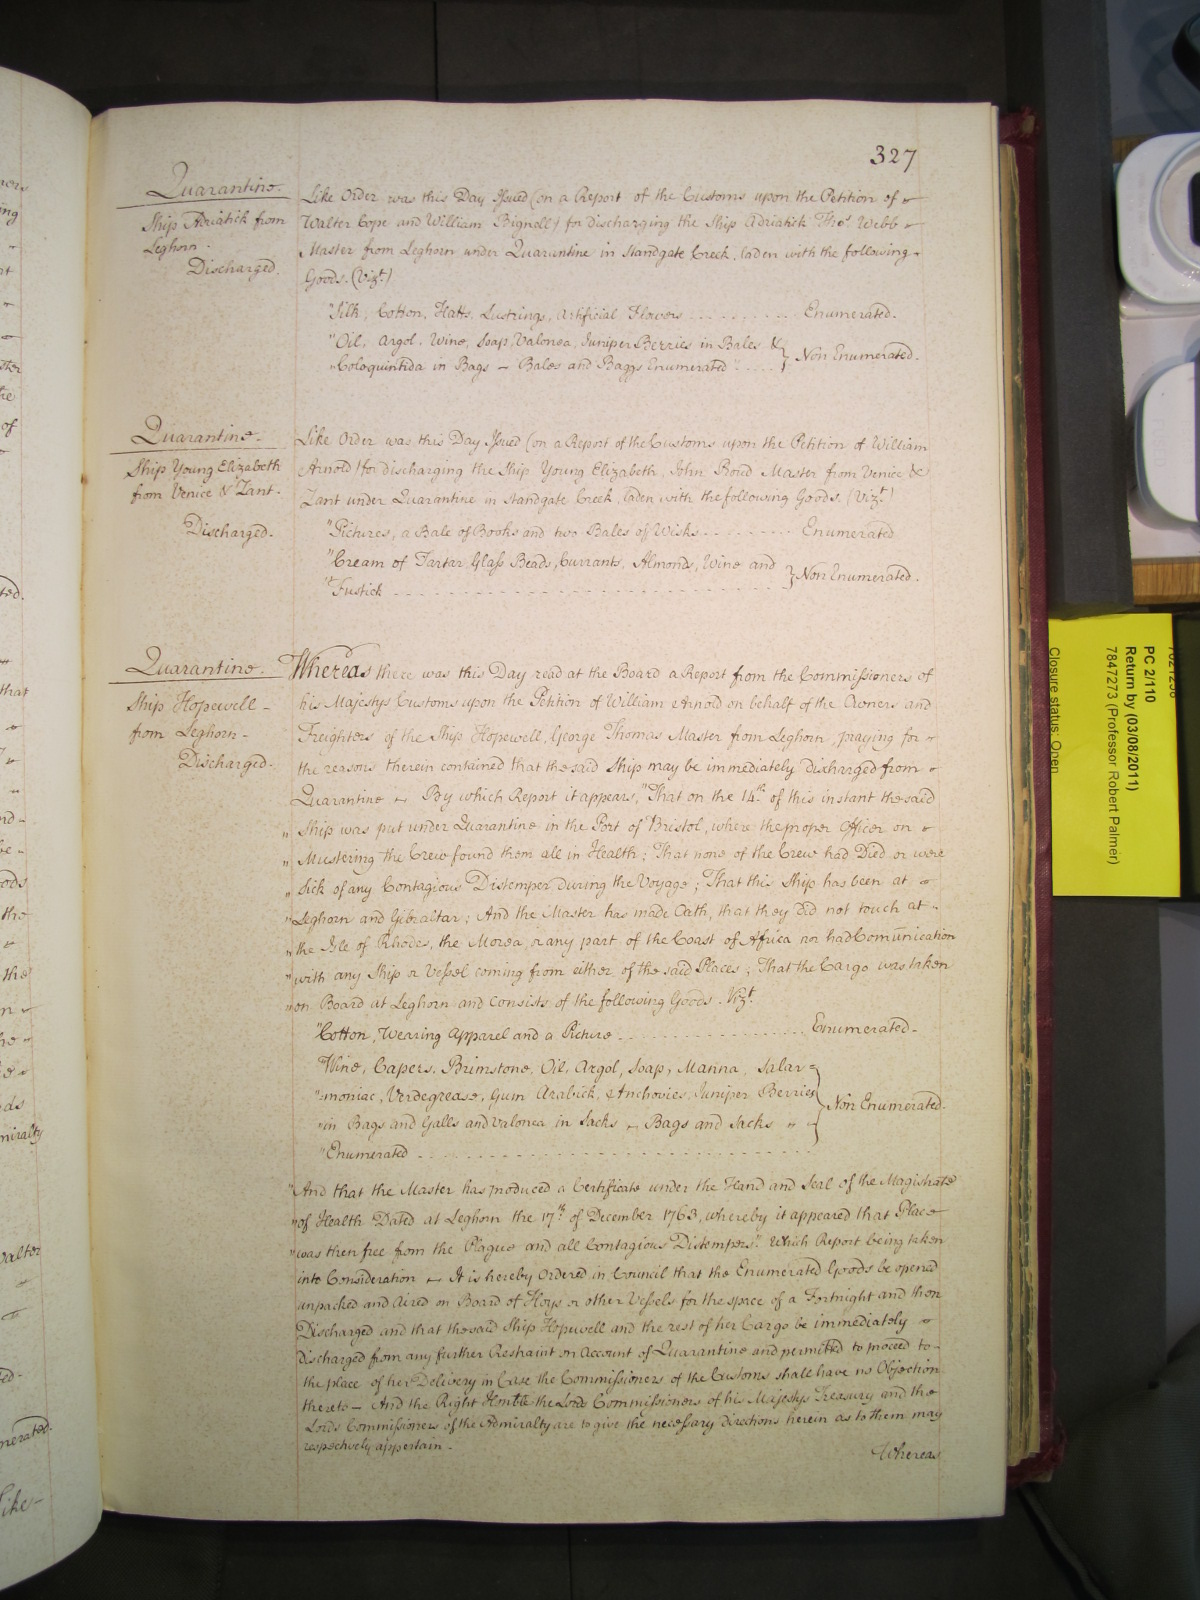 327
Quarantine.
Ship Adriatick from
Leghorn.
Discharged.
Like Order was this Day Issued (on a Report of the Customs upon the Petition of
Walter Cope and William Bignell) for discharging the Ship Adriatick Thos. Webb
Master from Leghorn under Quarantine in Standgate Creek, laden with the following
Goods. (Vizt.)
"Silk, Cotton, Hatts, Lustrings, Artificial Flowers . . . . . . . . . . Enumerated.
"Oil, Argol, Wine, Soap, Valonea, Juniper Berries in Bales &
"Coloquintida in Bags – Bales and Baggs Enumerated . . . . . } Non Enumerated.
Quarantine.
Ship Young Elizabeth
from Venice & Zant.
Discharged.
Like Order was this Day Issued (on a Report of the Customs upon the Petition of William
Arnold) for discharging the Ship Young Elizabeth, John Bond Master from Venice &
Zant under Quarantine in Standgate Creek, laden with the following Goods. (Vizt.)
"Pictures, a Bale of Books and two Bales of Wisks . . . . . . . . Enumerated
"Cream of Tartar, Glass Beads, Currants, Almonds, Wine and
"Fustick . . . . . . . . . . . . . . . . . . . . . . . . } Non Enumerated.
Quarantine.
Ship Hopewell –
from Leghorn –
Discharged.
Whereas there was this Day read at the Board a Report from the Commissioners of
his Majestys Customs upon the Petition of William Arnold on behalf of the Owners and
Freighters of the Ship Hopewell, George Thomas Master from Leghorn, praying for
the reasons therein contained that the said Ship may be immediately discharged from
Quarantine – By which Report it appears, "That on the 14th. of this instant the said
" Ship was put under Quarantine in the Port of Bristol, where the proper Officer on
" Mustering the Crew found them all in Health; That none of the Crew had Died or were
" Sick of any Contagious Distemper during the Voyage; That this Ship has been at
" Leghorn and Gibraltar; And the Master has made Oath, that they did not touch at
" the Isle of Rhodes, the Morea, or any part of the Coast of Africa nor had Com̃unication
" with any Ship or Vessel coming from either of the said Places; That the Cargo was taken
" on Board at Leghorn and consists of the following Goods. Vizt.
"Cotton, Wearing Apparel and a Picture . . . . . . . . . . . . . Enumerated.
"Wine, Capers, Brimstone, Oil, Argol, Soap, Manna, Salar=
"moniac, Verdegrease, Gum Arabick, Anchovies, Juniper Berries
"in Bags and Galls and Valonea in Sacks – Bags and Sacks " " } Non Enumerated.
"Enumerated . . . . . . . . . . . . . . . . . . . . . . . .
"And that the Master has produced a Certificate under the Hand and Seal of the Magistrate
"of Health Dated at Leghorn the 17th. of December 1763, whereby it appeared that Place
"was then free from the Plague and all Contagious Distempers". Which Report being taken
into Consideration – It is hereby Ordered in Council that the Enumerated Goods be opened
unpacked and Aired on Board of Hoys or other Vessels for the space of a Fortnight and then
Discharged and that the said Ship Hopewell and the rest of her Cargo be immediately
discharged from any further Restraint on Account of Quarantine and permitted to proceed to
the place of her Delivery in Case the Commissioners of the Customs shall have no Objection
thereto – And the Right Honble the Lords Commissioners of his Majestys Treasury and the
Lords Commissioners of the Admiralty are to give the necessary Directions herein as to them may
respectively appertain.
Whereas
PC 2/110
Return by (03/08/2011)
7847273 (Professor Robert Palmer)
Closure status: Open